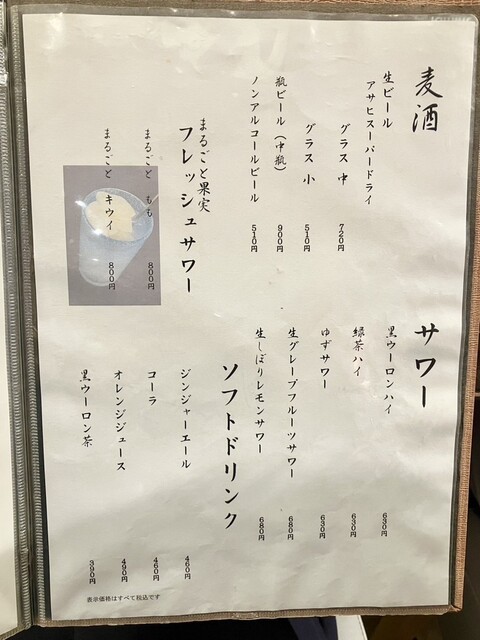 麦酒
生ビール
アサヒスーパードライ
グラス 中 720円
グラス 小 510円
瓶ビール（中瓶） 900円
ノンアルコールビール 510円
まるごと果実
フレッシュサワー
まるごと もも 800円
まるごと キウイ 800円
サワー
黒ウーロンハイ 630円
緑茶ハイ 630円
ゆずサワー 630円
生グレープフルーツサワー 680円
生しぼりレモンサワー 680円
ソフトドリンク
ジンジャーエール 460円
コーラ 460円
オレンジジュース 490円
黒ウーロン茶 390円
表示価格はすべて税込です